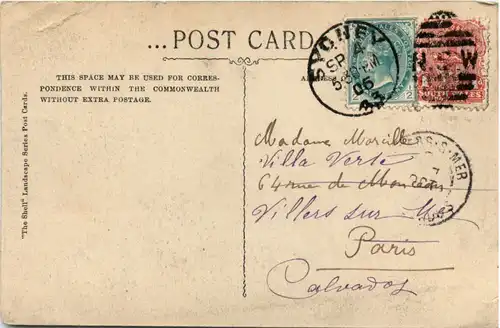 ... POST CARD
THIS SPACE MAY BE USED FOR CORRES-
PONDENCE WITHIN THE COMMONWEALTH
WITHOUT EXTRA POSTAGE.
"The Shell" Landscape Series Post Cards.
SYDNEY
SP 4
05
1/2
N S W
S-MER
Madame
Villa Verte
64 rue de
Villers sur Mer
Paris
Calvados